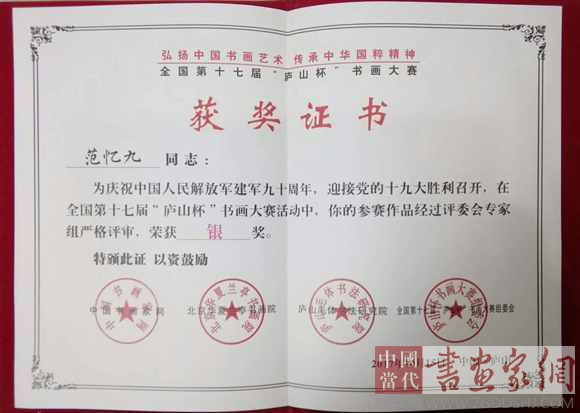 弘扬中国书画艺术 传承中华国粹精神
全国第十七届“庐山杯”书画大赛
获奖证书
范忆九 同志：
为庆祝中国人民解放军建军九十周年，迎接党的十九大胜利召开，在
全国第十七届“庐山杯”书画大赛活动中，你的参赛作品经过评委会专家
组严格评审，荣获 银 奖。
特颁此证 以资鼓励
庐山毛体书法研究院
中國當代書畫家網
WWW.ZGDDSHJ.COM